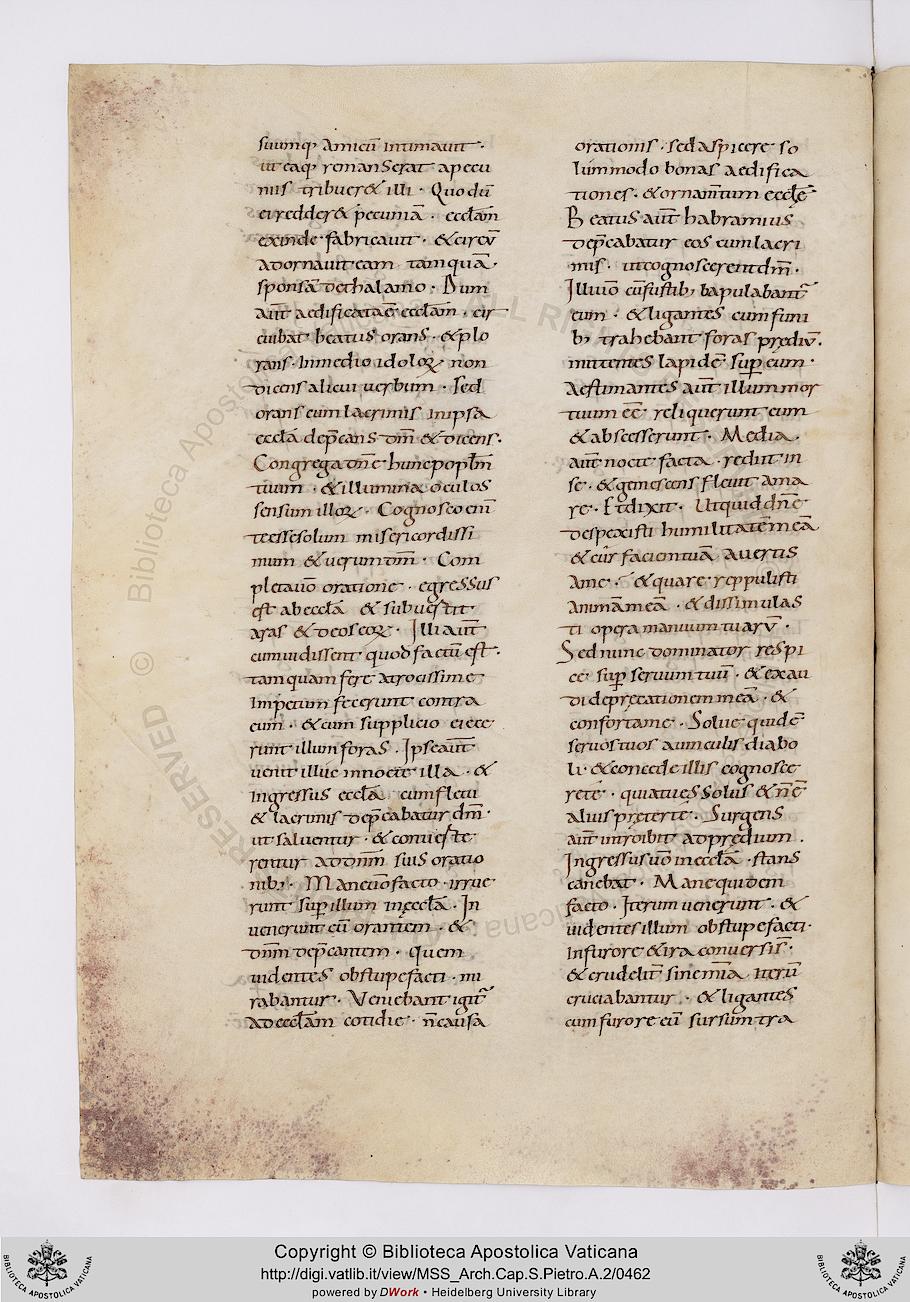 suumq; amicū intimauit ·
ut eaq; remanserat apecu
niis tribueret illi · Quo dū
ei redder& pecuniā · ecclām
exinde fabricauit · & circū
adornauit eam tamquā
sponsā dethalamo · Dum
aūt aedificata eē ecclām · cir
cuibat beatus orans · & plo
rans · Inmedio idoloꝝ non
dicens alicui uerbum · sed
orans cum lacrimis inipsa
ecclā dep̄cans dm̄ & dicens ·
Congrega dn̄e hunc popłm
tuum · & illumina oculos
sensum illoꝝ · Cognosco enī
te esse solum misericordissi
mum & uerum dm̄ · Com
pleta uō oratione · egressus
est ab ecclā & subuertit
aras & deos eoꝝ · Illi aūt
cum uidissent quod factū est ·
tam quam fere atrocissime
Impetum fecerunt contra
eum · & cum supplicio eiece
runt illum foras · Ipse aūt
uenit illuc innocte illa · &
ingressus ecclā cum fletu
& lacrimis dep̄cabatur dm̄ ·
ut saluentur · & conuerte
rentur ad dnm̄ suis oratio
nib; · Mane uō facto · irrue
runt sup̄ illum inecclā · In
uenerunt eū orantem · &
dnm̄ dep̄cantem · quem
uidentes obstupefacti · mi
rabantur · Veniebant igit̄
ad ecclām cotidie · n̄ causa
orationis · sed aspicere so
lummodo bonas aedifica
tiones · & ornam̄tum eccłę
Beatus aūt habramius
dep̄cabatur eos cum lacri
mis · ut cognoscerent dm̄ ·
Illi uō cū fustib; bapulabant̄
eum · & ligantes eum funi
b; trahebant foras prediū ·
mittentes lapidē sup̄ eum ·
Aestimantes aūt illum mor
tuum eē reliquerunt eum
& abscesserunt · Media
aūt nocte facta · rediit in
se · & gemescens fleuit ama
re · Et dixit · Utquid dn̄e
despexisti humilitatē meā
& cur faciem tuā auertis
Ame · & quare reppulisti
animam meā · & dissimulas
ti opera manuum tuarū ·
Sed nunc dominator respi
ce sup̄ seruum tuū · & exau
di deprecationem meā · &
conforta me · Solue quidē
seruos tuos a uinculis diabo
li · & concede illis cognosce
re te · quia tu es solus & n̄ ē
alius preter te · Surgens
aūt introibit ad predium ·
Ingressus uō inecclā · stans
canebat · Mane quidem
facto · Iterum uenerunt · &
uidentes illum obstupefacti ·
Infurore & ira conuersis ·
& crudelit̄ sine mīa iterū
cruciabantur · & ligantes
cum furore eū sursum tra
Copyright © Biblioteca Apostolica Vaticana
http://digi.vatlib.it/view/MSS_Arch.Cap.S.Pietro.A.2/0462
powered by DWork • Heidelberg University Library